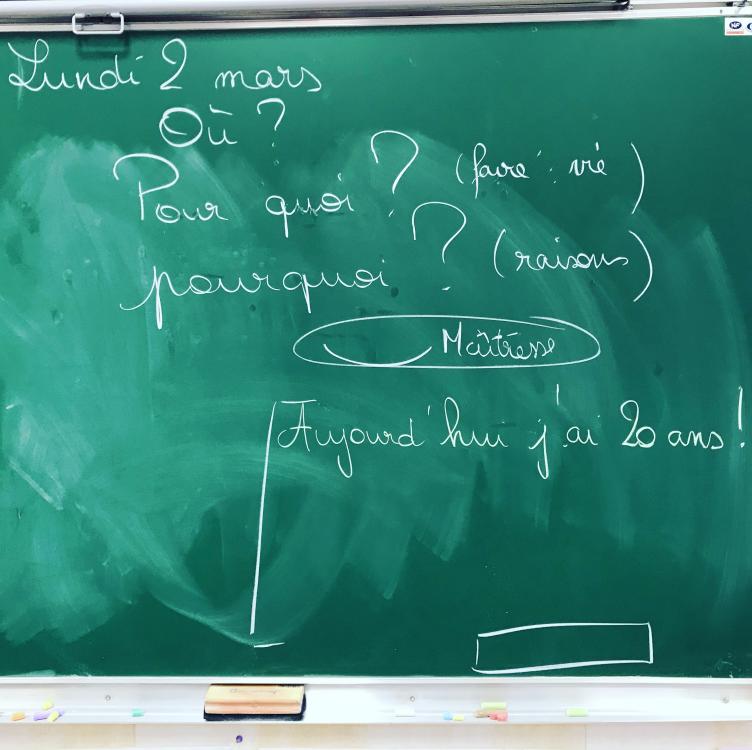 Lundi 2 mars
Où ?
Pour quoi ? (faire : vie)
pourquoi ? (raisons)
Maîtresse
Aujourd'hui j'ai 20 ans !